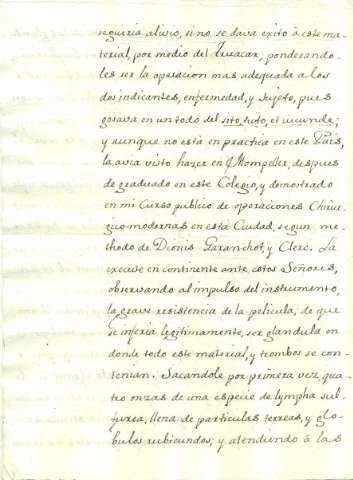 seguiria alivio, si no se dava exito â este ma-
terial, por medio del Truacar, ponderando-
les ser la operacion mas adequada a los
dos indicantes, enfermedad, y sujeto, pues
gosava en un todo del sito, tuto, et iucunde;
y aunque no està en practica en este Païs,
la avia visto hazer en Mompeller, despues
de graduado en este Colegio, y demostrado
en mi Curso publico de operaciones Chirur-
gico modernas en esta Ciudad, segun me-
thodo de Dionis Garanchot, y Clerc. La
execute en continente ante estos Señores,
observando al impulso del instrumento,
la grave resistencia de la pelicula; de que
se inferia legitimamente, ser glandula en
donde todo este material, y trombos se con-
tenian. Sacandole por primera vez, qua-
tro onzas de una especie de lympha sul-
furea, llena de particulas terreas, y glo-
bulos rubicundos; y atendiendo â las